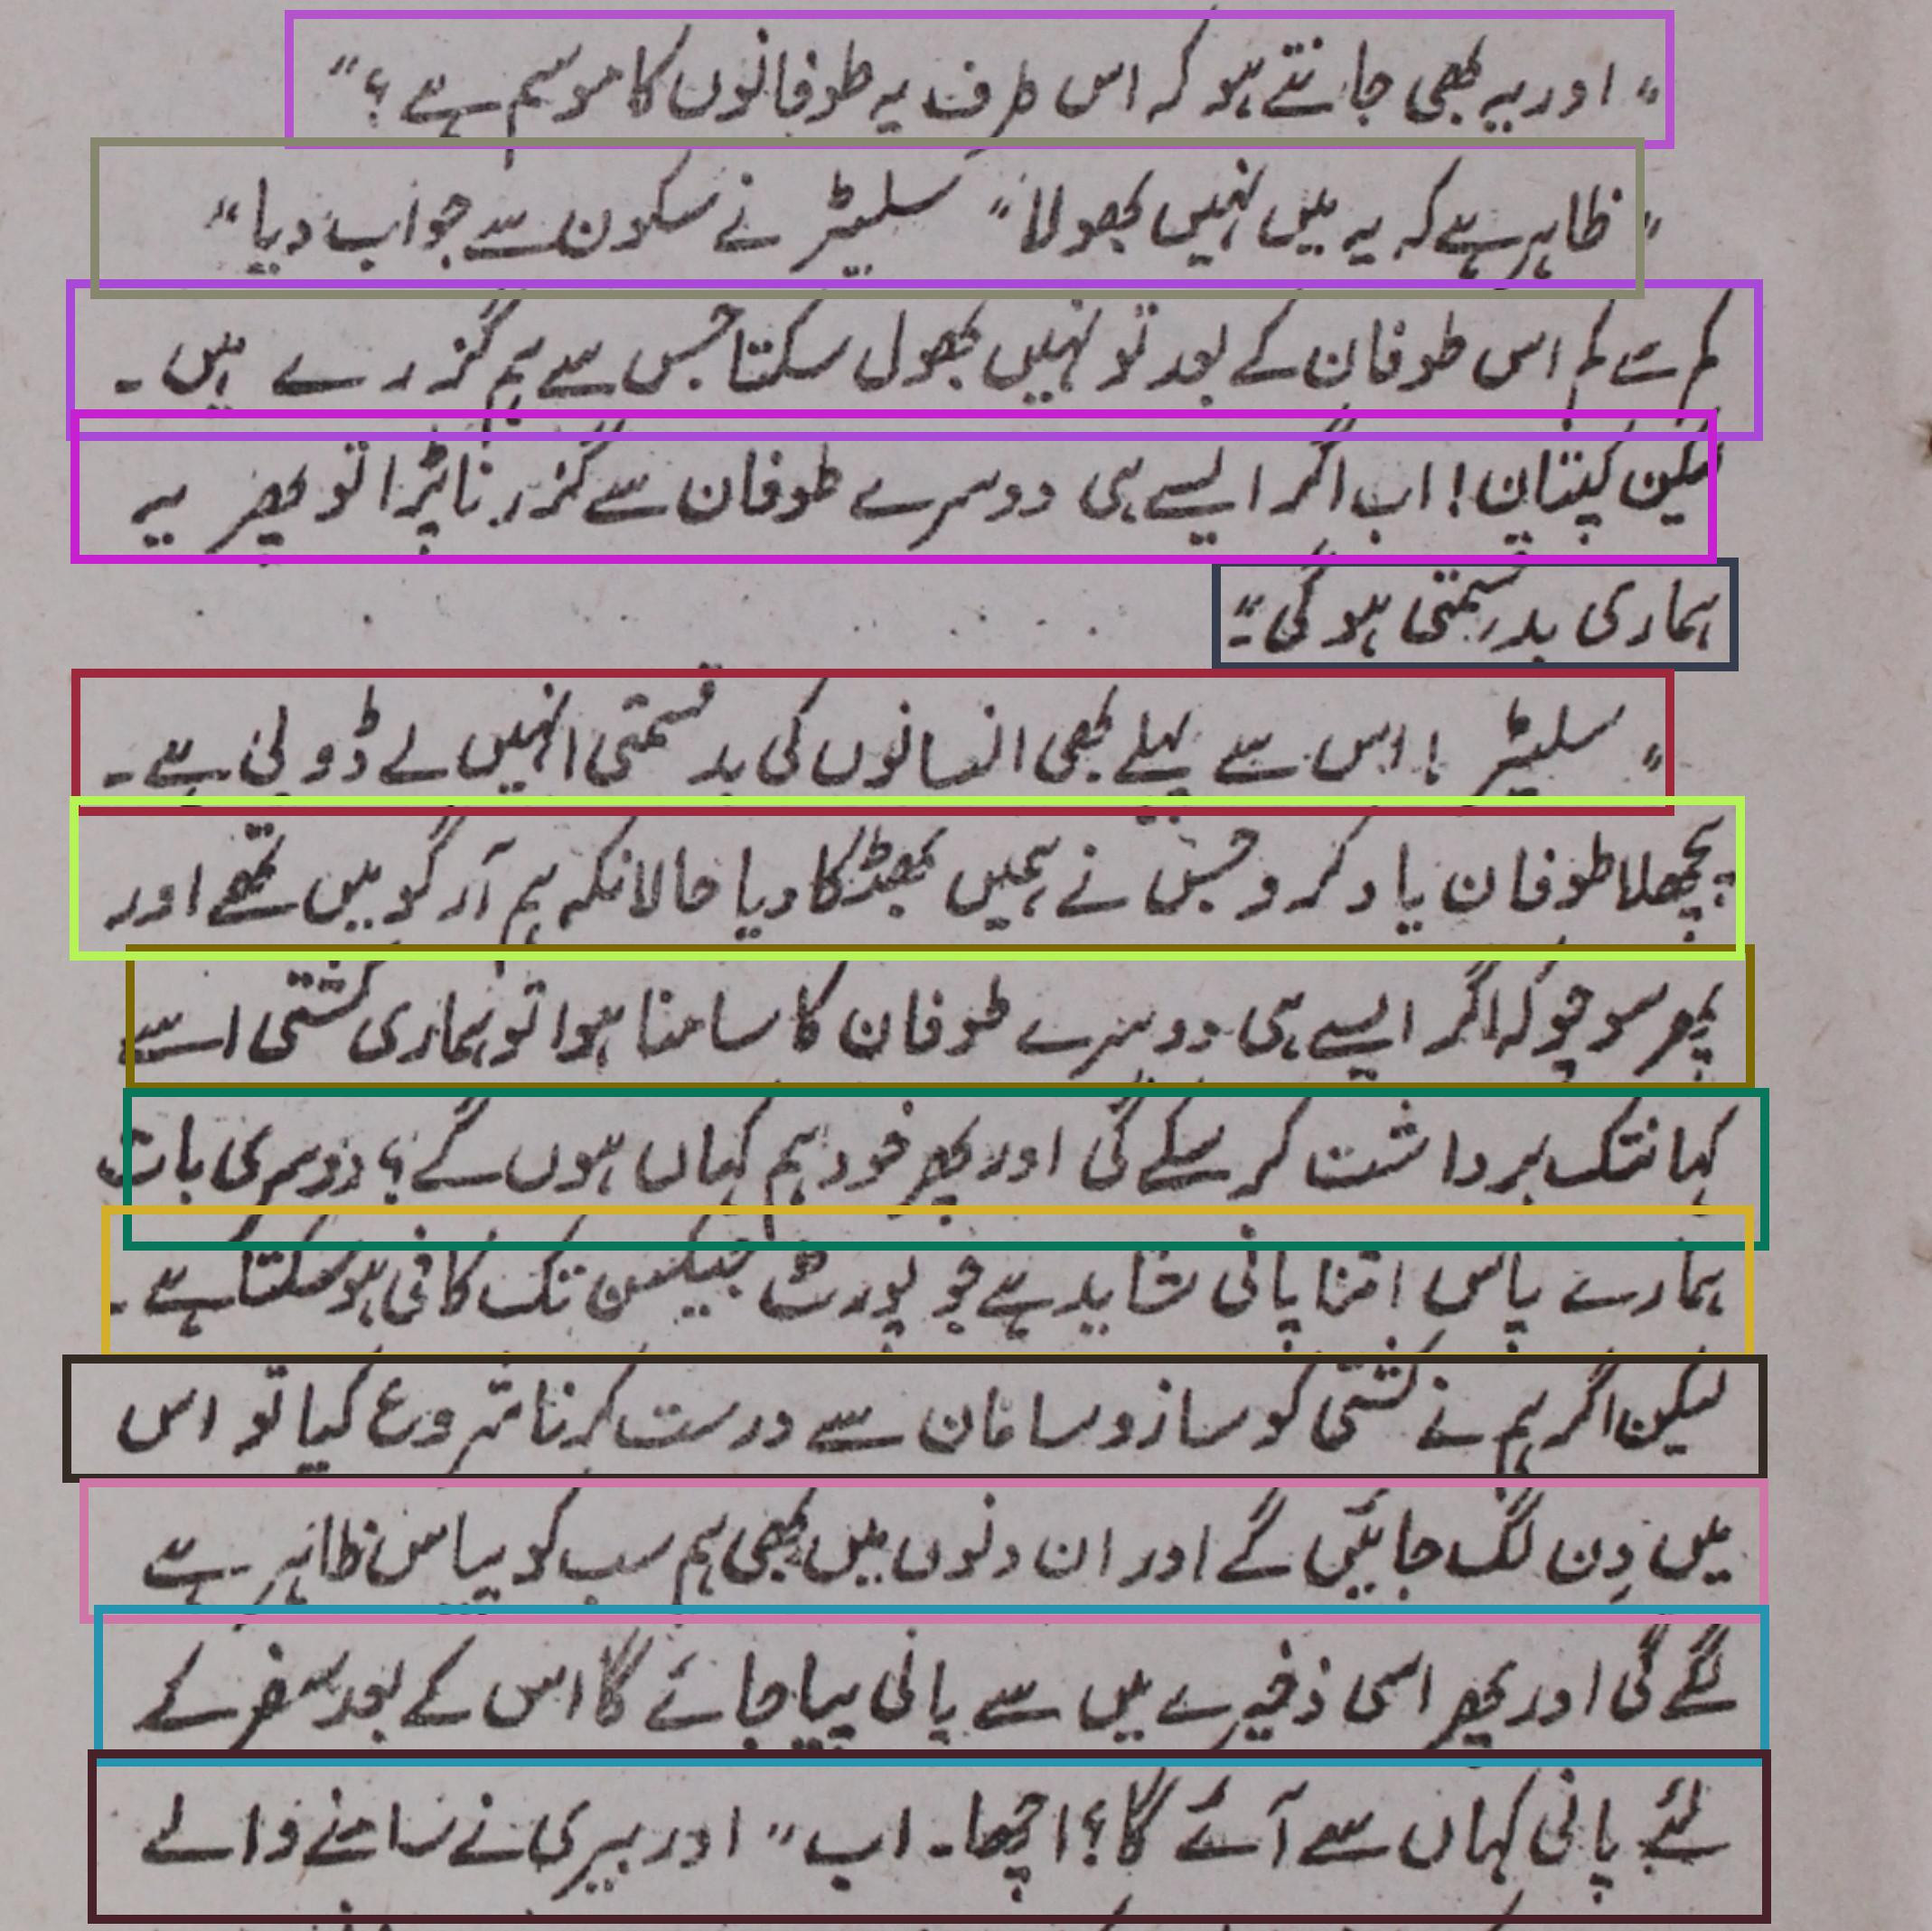 "اور یہ بھی جانتے ہو کہ اس طرف یہ طوفانوں کا موسم ہے ؟"
"ظاہر ہے کہ یہ میں نہیں بھولا" سلیٹر نے سکون سے جواب دیا"
کم سے کم اس طوفان کے بعد تو نہیں بھول سکتا جس سے ہم گزرے ہیں ۔
لیکن کپتان! اب اگر ایسے ہی دوسرے طوفان سے گزرنا پڑا تو پھر یہ
ہماری بدقسمتی ہو گی۔"
"سلیٹر ! اس سے پہلے بھی انسانوں کی بدقسمتی انہیں لے ڈوبی ہے ۔
پچھلا طوفان یاد کرو جس نے ہمیں بھڑکا دیا حالانکہ ہم آرگو میں تھے اور
پھر سوچو کہ اگر ایسے ہی دوسرے طوفان کا سامنا ہوا تو ہماری کشتی اسے
کہانتک برداشت کر سکے گی اور پھر خود ہم کہاں ہوں گے ؟ دوسری بات
ہمارے پاس اتنا پانی شاید ہے جو پورٹ جیکسن تک کافی ہو سکتا ہے ۔
لیکن اگر ہم نے کشتی کو ساز و سامان سے درست کرنا شروع کیا تو اس
میں دِن لگ جائیں گے اور ان دنوں میں بھی ہم سب کو پیاس ظاہر ہے
لگے گی اور پھر اسی ذخیرے میں سے پانی پیا جائے گا اس کے بعد سفر کے
لئے پانی کہاں سے آئے گا؟ اچھا۔ اب" اور بیری نے سامنے والے